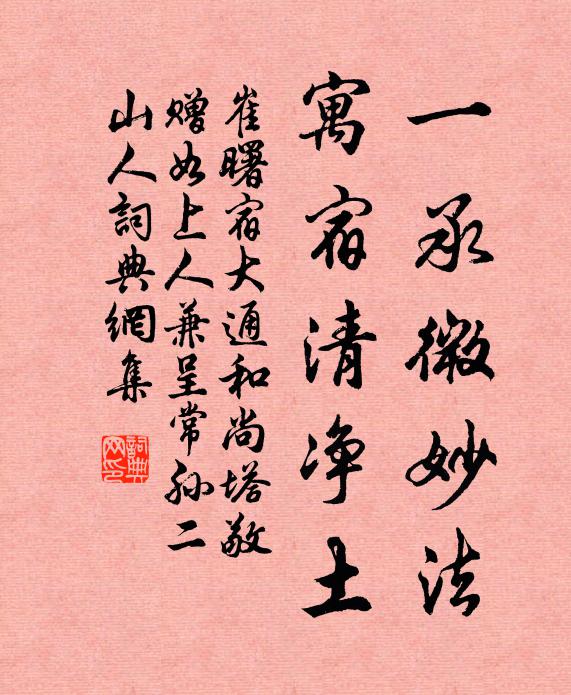 一承微妙法
寓宿清净土
崔曙宿大通和尚塔敬
赠如上人兼呈常孙二
山人詞典網集
詞典
网印